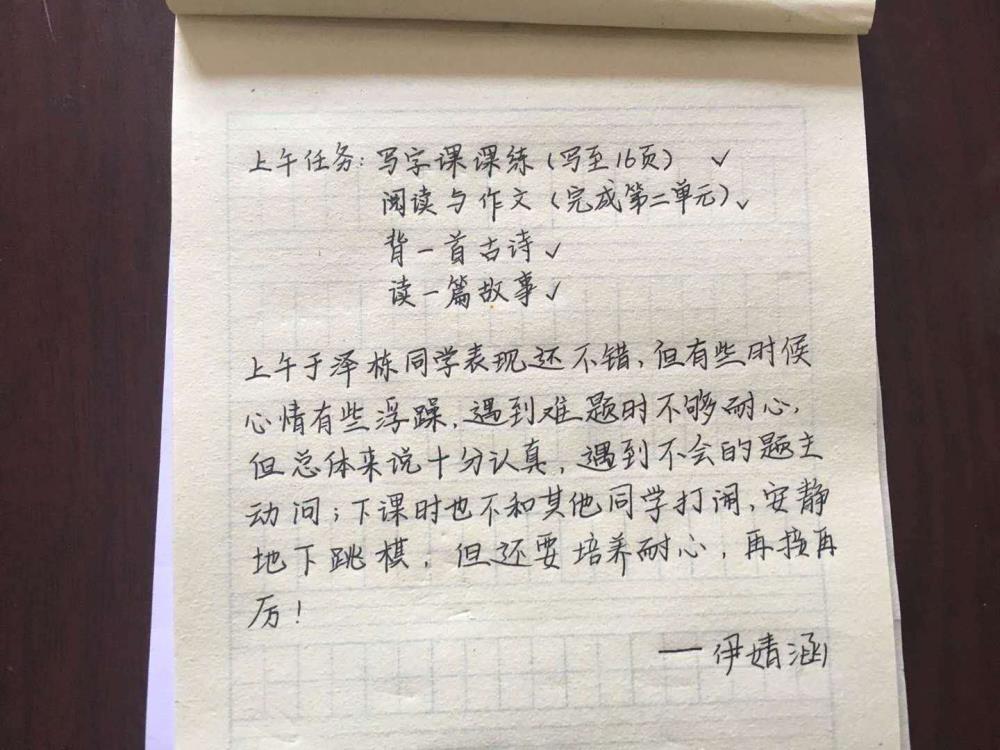 上午任务：写字课课练（写至16页） ✓
阅读与作文（完成第二单元）✓
背一首古诗 ✓
读一篇故事 ✓
上午于泽栋同学表现还不错，但有些时候
心情有些浮躁，遇到难题时不够耐心，
但总体来说十分认真，遇到不会的题主
动问；下课时也不和其他同学打闹，安静
地下跳棋。但还要培养耐心，再接再
厉！
——伊婧涵